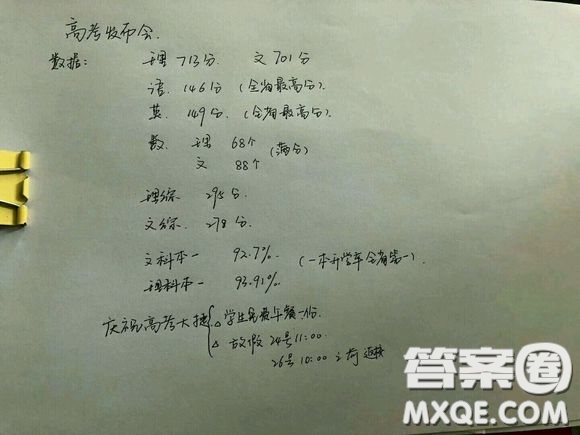 高考发布会.
数据: 理 713分. 文 701分
语. 146分 (全省最高分).
英. 149分. (全省最高分).
数. 理 68个 (满分)
文 88个
理综. 295分.
文综. 278分.
文科本一 92.7%. (一本升学率全省第一).
理科本一 93.91%.
庆祝高考大捷 △ 学生免费午餐一份
△ 放假 24号11:00
26号10:00之前返校
答案圈
MXQE.COM